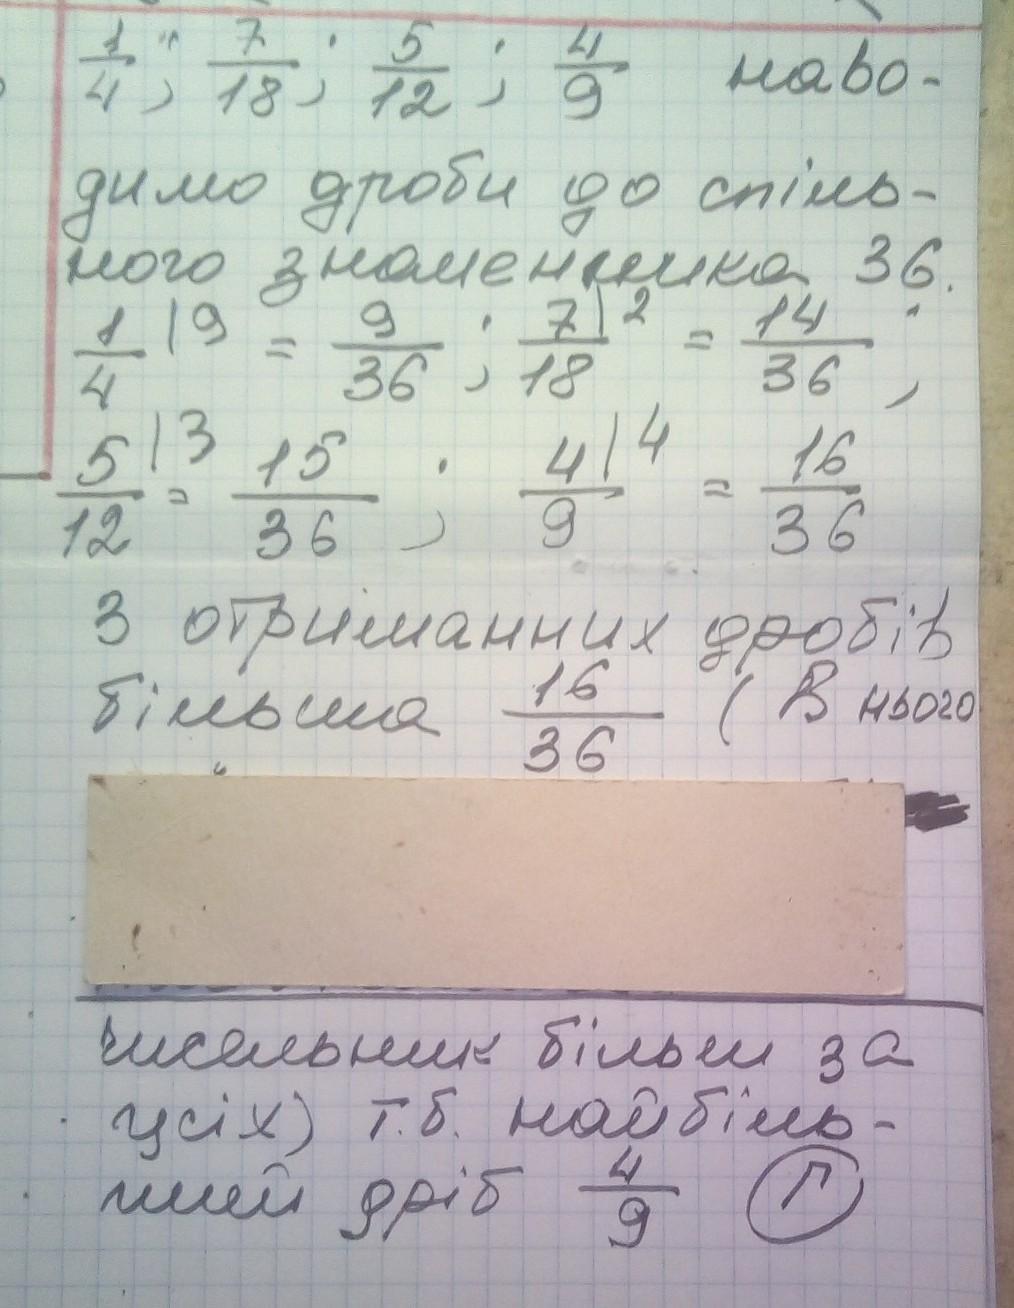 1/4; 7/18; 5/12; 4/9 наво-
димо дроби до спіль-
ного знаменника 36.
1/4 |9 = 9/36; 7/18 |2 = 14/36;
5/12 |3 = 15/36; 4/9 |4 = 16/36
З отриманних дробів
більша 16/36 (В нього
чисельник більш за
усіх) т.б. найбіль-
ший дріб 4/9 Г